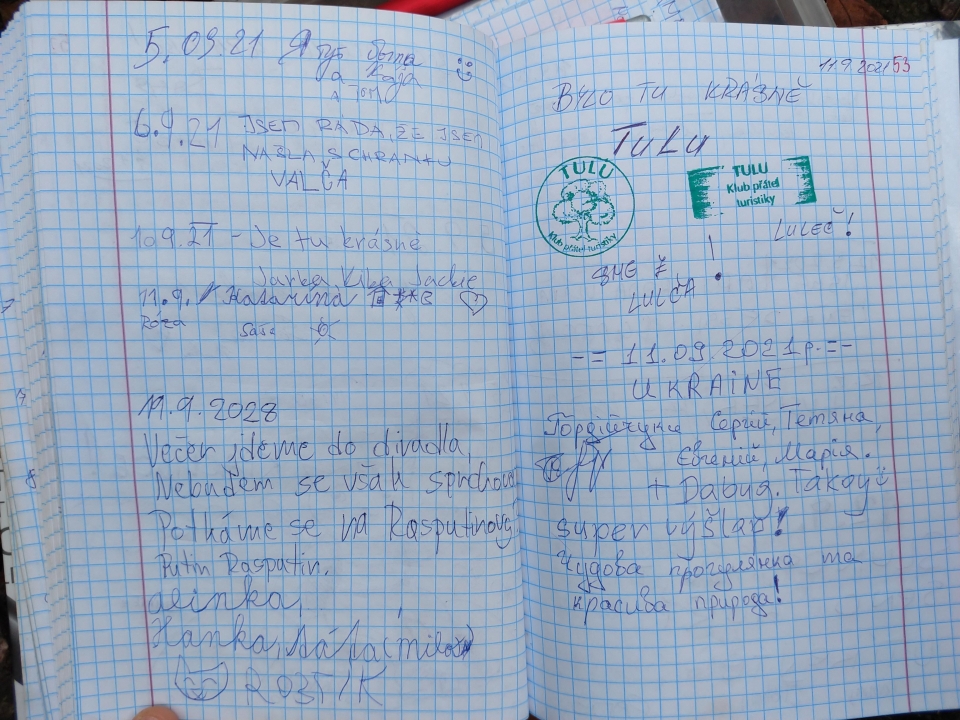 5.09.21 Я тут
a Kája
a Tom
6.9.21 JSEM RÁDA, ŽE JSEM
NAŠLA SCHRÁNKU
VALČA
10.9.21 - Je tu krásně
Jarka, Kika, Jackie
11.9. Katarína
Róza Sáša
11.9.2028
Večer jdeme do divadla,
Nebudem se však sprchovat
Potkáme se na Rasputinovy
Putin Rasputin.
alinka,
Hanka, táta (miloš)
ROSTIK
11.9.2021 53
BYLO TU KRÁSNĚ
TuLu
TULU
Klub přátel turistiky
TULU
Klub přátel
turistiky
LULEČ!
SME Z
LULČA!
-= 11.09.2021р. =-
UKRAINE
Гордійчуки Сергій, Тетяна,
Євгеній, Марія.
+ Dabug. Takovej
super výšlap!
Чудова прогулянка та
красива природа!